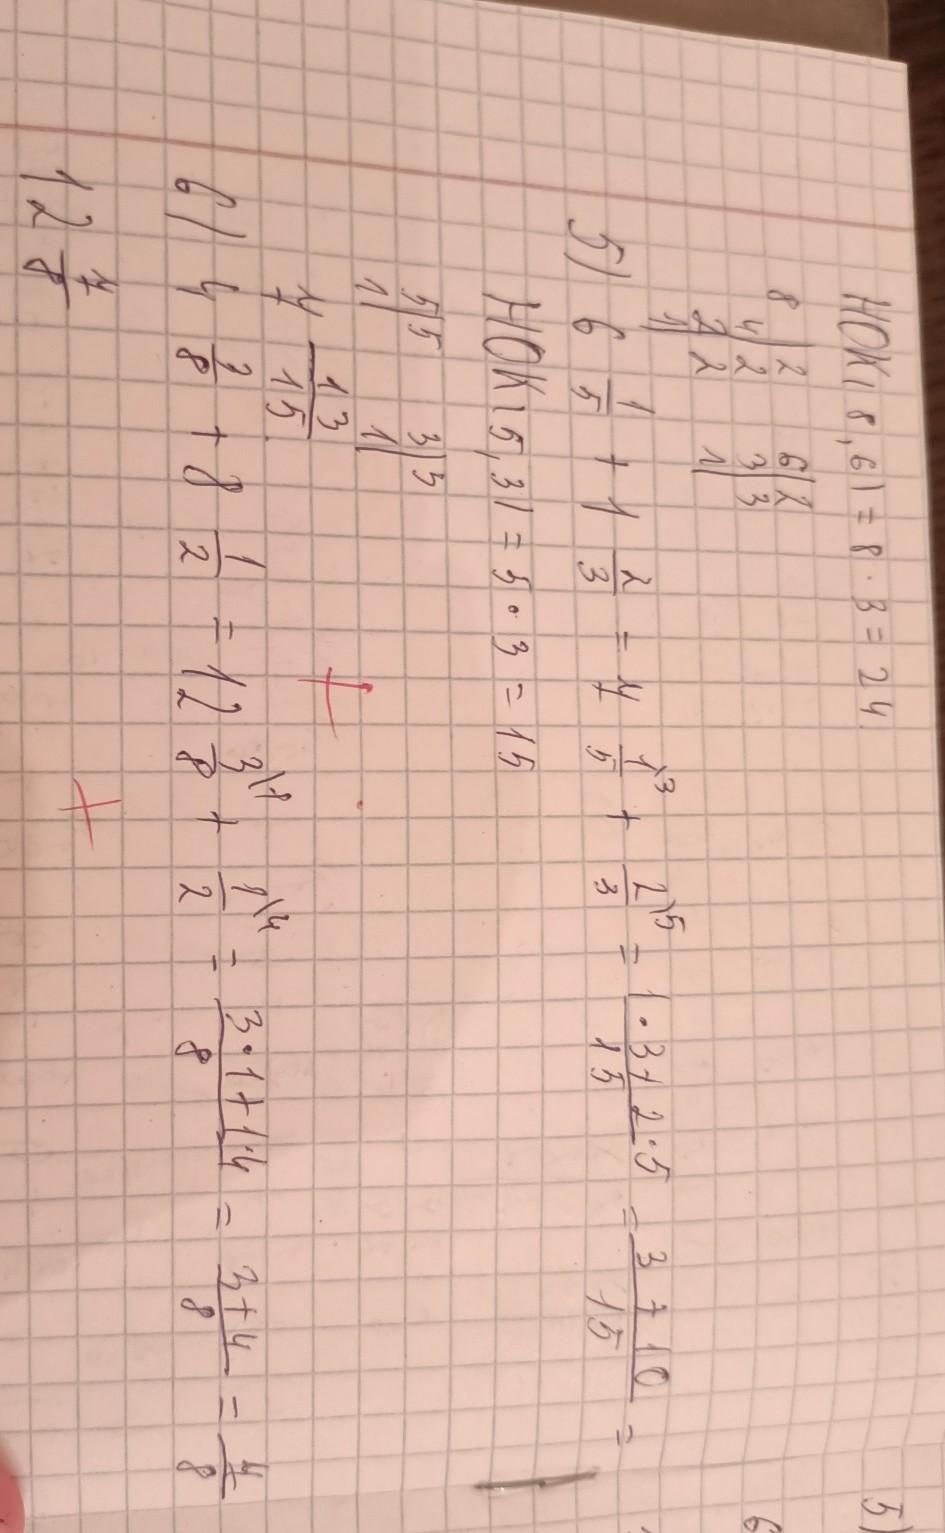 НОК(8,6) = 8 · 3 = 24
8|2 6|2
4|2 3|3
2|2 1|
1|
5) 6 1/5 + 1 2/3 = 7 1\3/5 + 2\5/3 = 1·3+2·5/15 = 3+10/15 =
НОК(5,3) = 5 · 3 = 15
5|5 3|3
1| 1|
7 13/15
6) 4 3/8 + 8 1/2 = 12 3\1/8 + 1\4/2 = 3·1+1·4/8 = 3+4/8 = 7/8
12 7/8
5)
6